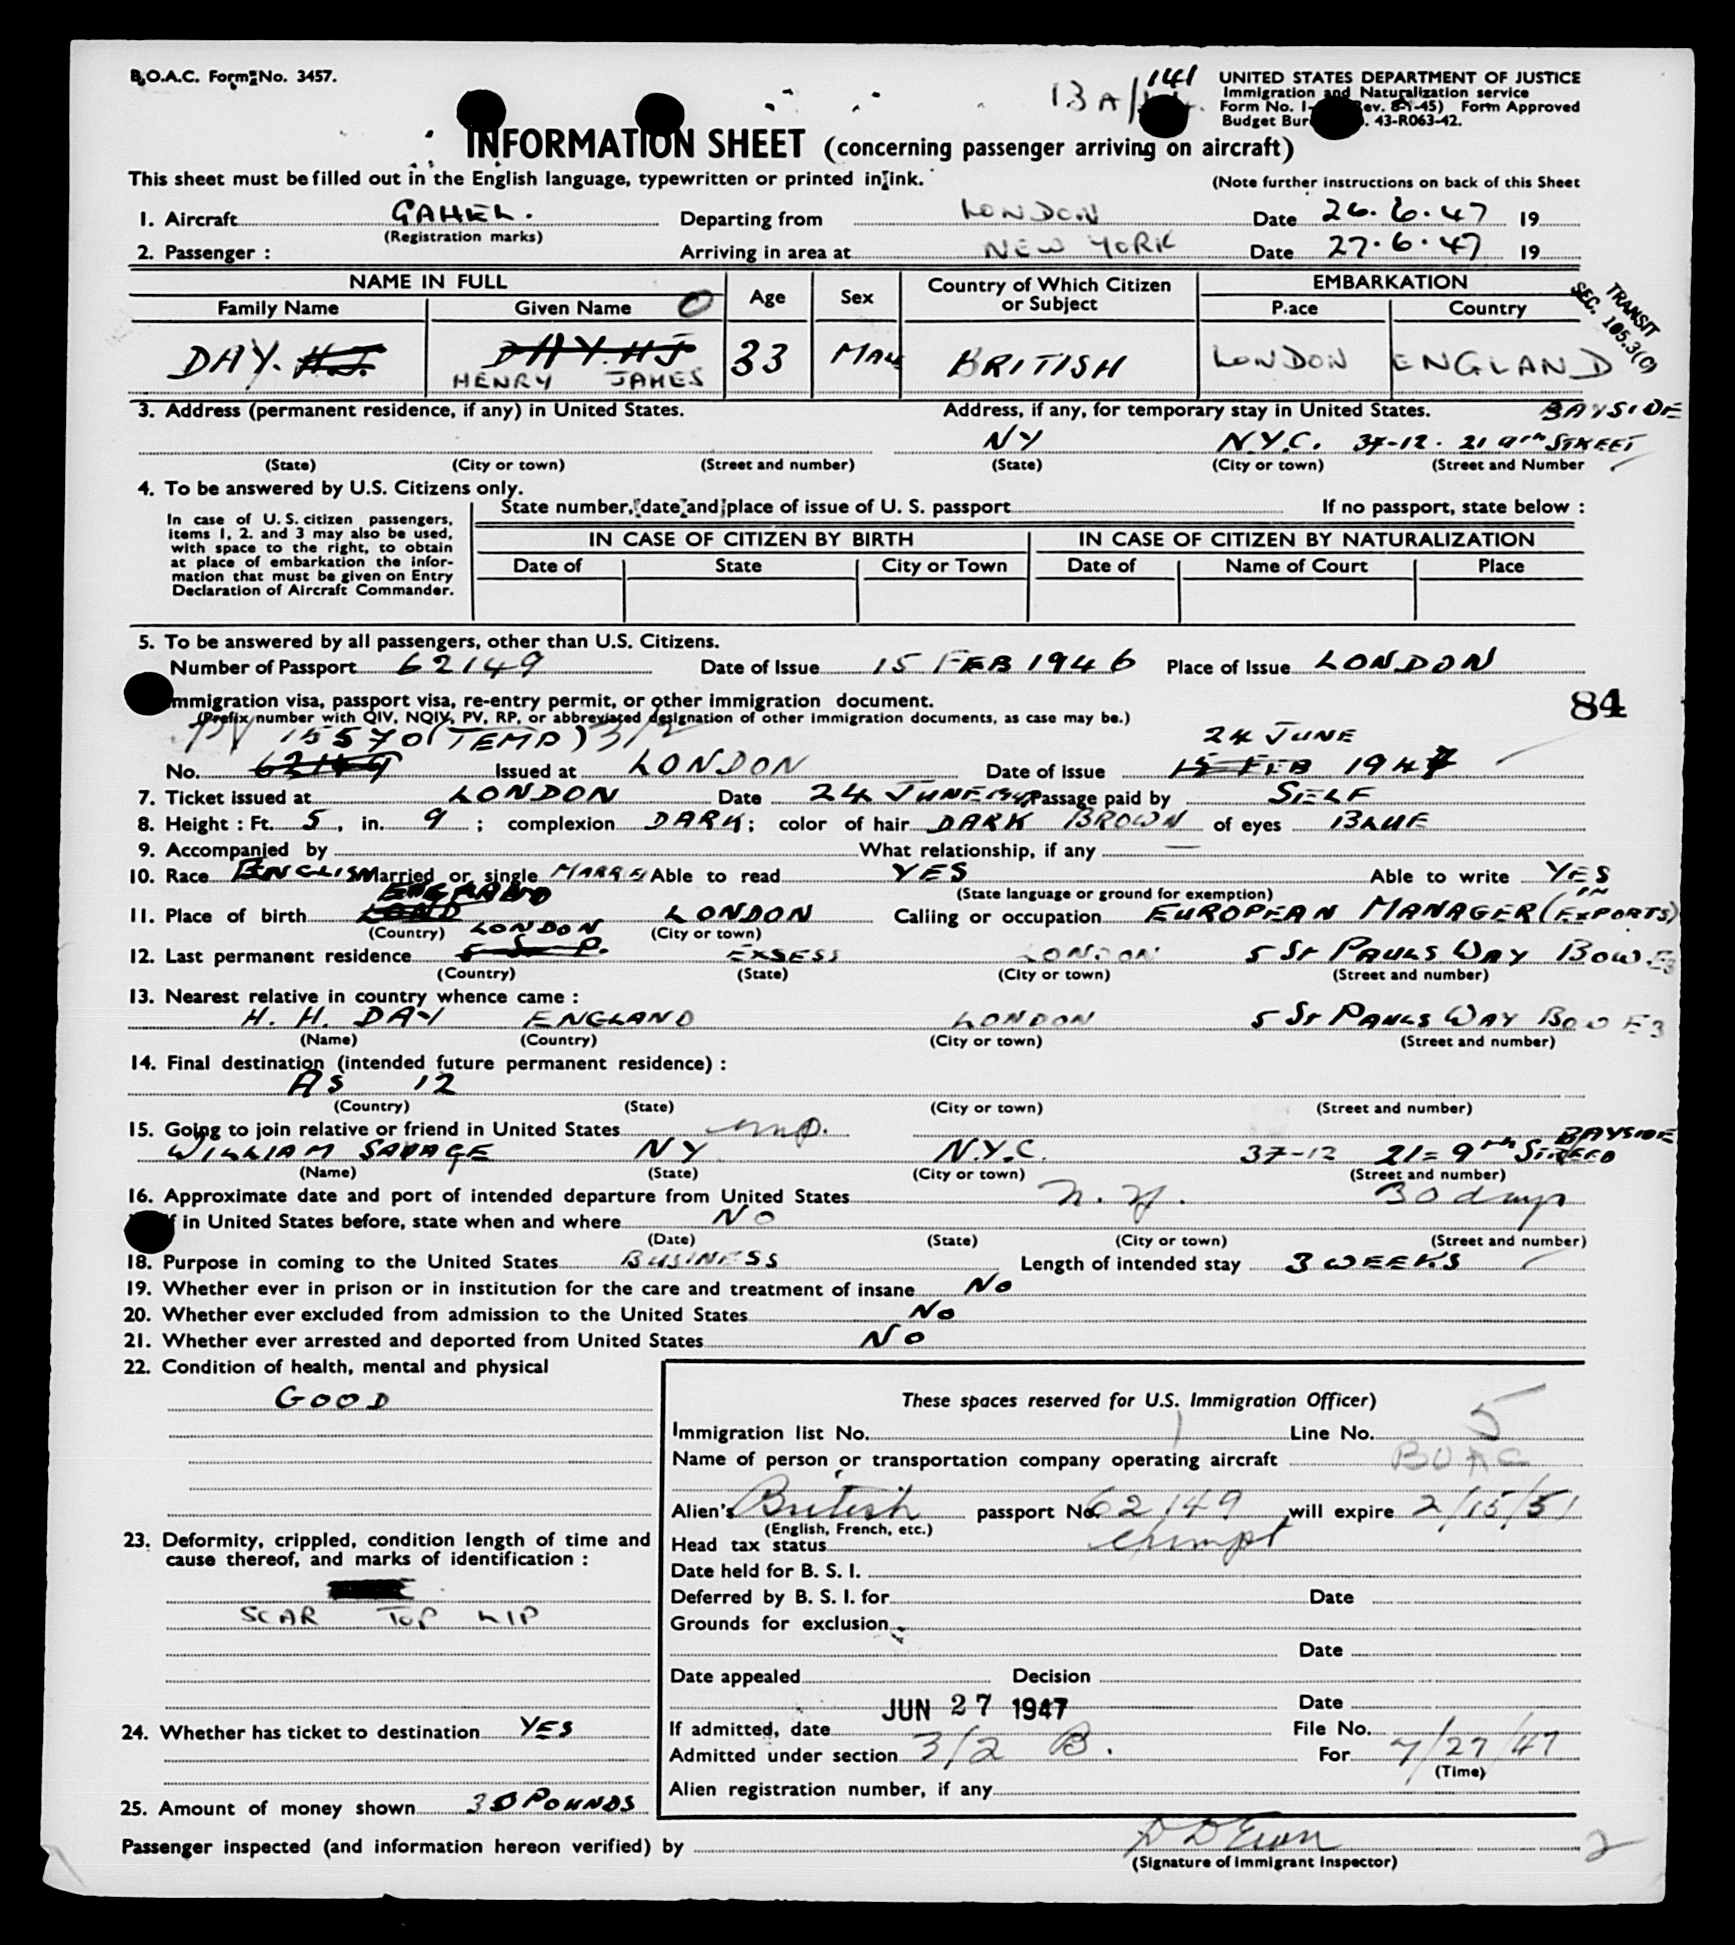 B.O.A.C. Form No. 3457.
141
13A/
UNITED STATES DEPARTMENT OF JUSTICE
Immigration and Naturalization service
Form No. I- ev. 8-1-45) Form Approved
Budget Bur . 43-R063-42.
INFORMATION SHEET (concerning passenger arriving on aircraft)
This sheet must be filled out in the English language, typewritten or printed in ink.
(Note further instructions on back of this Sheet
1. Aircraft GAHEL. Departing from LONDON Date 26.6.47 19
(Registration marks)
2. Passenger : Arriving in area at NEW YORK Date 27.6.47 19
NAME IN FULL Age Sex Country of Which Citizen or Subject EMBARKATION
Family Name Given Name O Place Country
TRANSIT
SEC. 105.3(C)
DAY. H.J. DAY. HJ 33 MALE BRITISH LONDON ENGLAND
HENRY JAMES
3. Address (permanent residence, if any) in United States. Address, if any, for temporary stay in United States. BAYSIDE
NY N.Y.C. 37-12. 219th STREET
(State) (City or town) (Street and number) (State) (City or town) (Street and Number
4. To be answered by U.S. Citizens only.
State number, date and place of issue of U. S. passport If no passport, state below :
In case of U. S. citizen passengers,
items 1, 2. and 3 may also be used,
with space to the right, to obtain
at place of embarkation the infor-
mation that must be given on Entry
Declaration of Aircraft Commander.
IN CASE OF CITIZEN BY BIRTH IN CASE OF CITIZEN BY NATURALIZATION
Date of State City or Town Date of Name of Court Place
5. To be answered by all passengers, other than U.S. Citizens.
Number of Passport 62149 Date of Issue 15 FEB 1946 Place of Issue LONDON
mmigration visa, passport visa, re-entry permit, or other immigration document. 84
(Prefix number with QIV, NQIV, PV, RP, or abbreviated designation of other immigration documents, as case may be.)
PV 15570 (TEMP) 3/2 24 JUNE
No. 62149 Issued at LONDON Date of issue 15 FEB 1947
7. Ticket issued at LONDON Date 24 JUNE 1947 Passage paid by SELF
8. Height : Ft. 5, in. 9 ; complexion DARK; color of hair DARK BROWN of eyes BLUE
9. Accompanied by What relationship, if any —
10. Race ENGLISH Married or single MARRED Able to read YES Able to write YES
(State language or ground for exemption)
ENGLAND
11. Place of birth LOND LONDON Calling or occupation EUROPEAN MANAGER (IN EXPORTS)
(Country) LONDON (City or town)
12. Last permanent residence 5 St P. EXSESS LONDON 5 ST PAULS WAY BOW E3
(Country) (State) (City or town) (Street and number)
13. Nearest relative in country whence came :
H. H. DAY ENGLAND LONDON 5 ST PAULS WAY BOW E3
(Name) (Country) (City or town) (Street and number)
14. Final destination (intended future permanent residence) :
AS 12
(Country) (State) (City or town) (Street and number)
15. Going to join relative or friend in United States emp.
BAYSIDE
WILLIAM SAVAGE NY N.Y.C. 37-12 219th STREED
(Name) (State) (City or town) (Street and number)
16. Approximate date and port of intended departure from United States N.Y. 30 days
f in United States before, state when and where NO
(Date) (State) (City or town) (Street and number)
18. Purpose in coming to the United States BUSINESS Length of intended stay 3 WEEKS
19. Whether ever in prison or in institution for the care and treatment of insane NO
20. Whether ever excluded from admission to the United States NO
21. Whether ever arrested and deported from United States NO
22. Condition of health, mental and physical
GOOD
These spaces reserved for U.S. Immigration Officer)
Immigration list No. 1 Line No. 5
Name of person or transportation company operating aircraft BOAC
Alien's British passport No 62149 will expire 2/15/51
(English, French, etc.)
Head tax status exempt
23. Deformity, crippled, condition length of time and
cause thereof, and marks of identification :
SCAR TOP LIP
Date held for B. S. I.
Deferred by B. S. I. for Date
Grounds for exclusion
Date
Date appealed Decision
JUN 27 1947 Date
If admitted, date File No.
24. Whether has ticket to destination YES
Admitted under section 3/2 B. For 7/27/47
(Time)
Alien registration number, if any
25. Amount of money shown 30 POUNDS
Passenger inspected (and information hereon verified) by
(Signature of Immigrant Inspector)
2